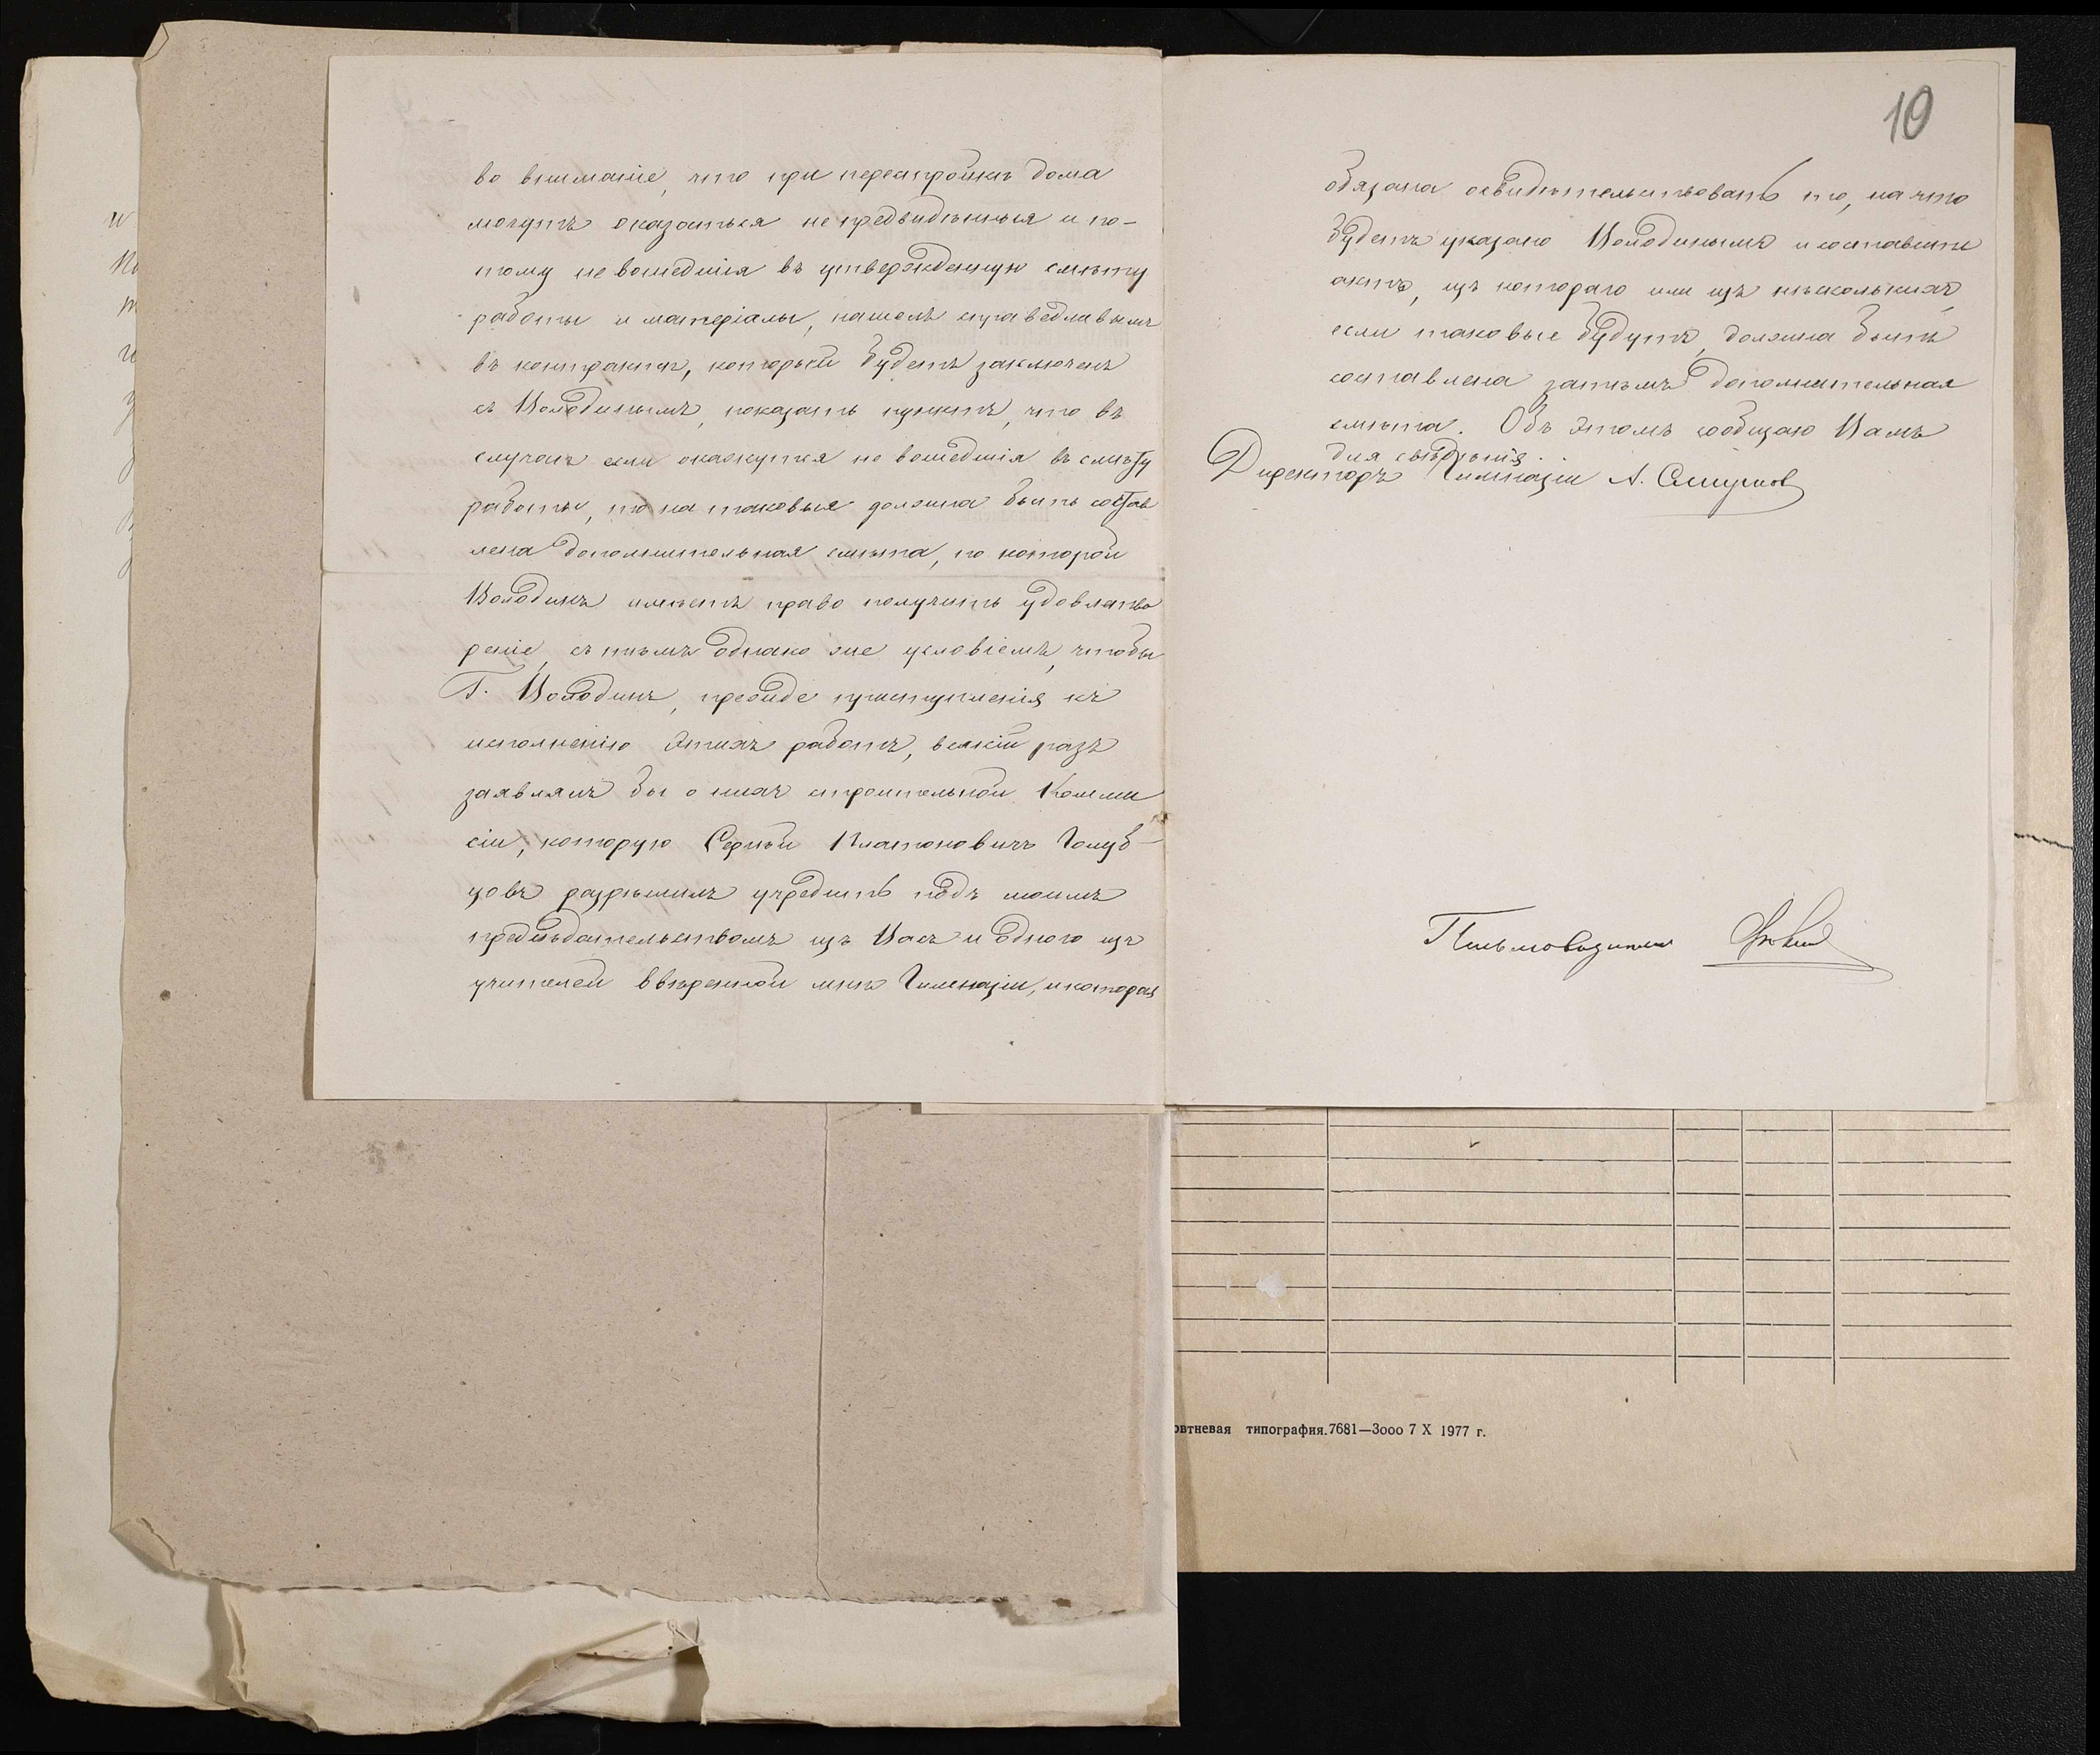 во вниманіе, что при перестройкѣ дома
могутъ оказаться непредвидѣнныя и по-
тому не вошедшія въ утвержденную смѣту
работы и матеріалы, нашелъ справедливымъ
въ контрактѣ, который будетъ заключенъ
съ Володинымъ, показать пунктъ, что въ
случаѣ если окажутся не вошедшія въ смѣту
работы, то на таковыя должна быть состав
лена дополнительная смѣта, по которой
Володинъ имѣетъ право получить удовлетво
реніе, съ тѣмъ однако же условіемъ, чтобы
Г. Володинъ, прежде приступленія къ
исполненію этихъ работъ, всякій разъ
заявлялъ бы о нихъ строительной Комми
сіи, которую Сергѣй Платоновичъ Голуб-
цовъ разрѣшилъ учредить подъ моимъ
предсѣдательствомъ изъ Васъ и одного изъ
учителей ввѣренной мнѣ Гимназіи, и которая
10
обязана освидѣтельствовать то, на что
будетъ указано Володинымъ и составить
актъ, изъ котораго или изъ нѣсколькихъ,
если таковые будутъ, должна быть
составлена затѣмъ дополнительная
смѣта. Объ этомъ сообщаю Вамъ
для свѣдѣнія.
Директоръ Гимназіи А. Смирнов
Письмоводитель
овтневая типография.7681—3ооо 7 X 1977 г.